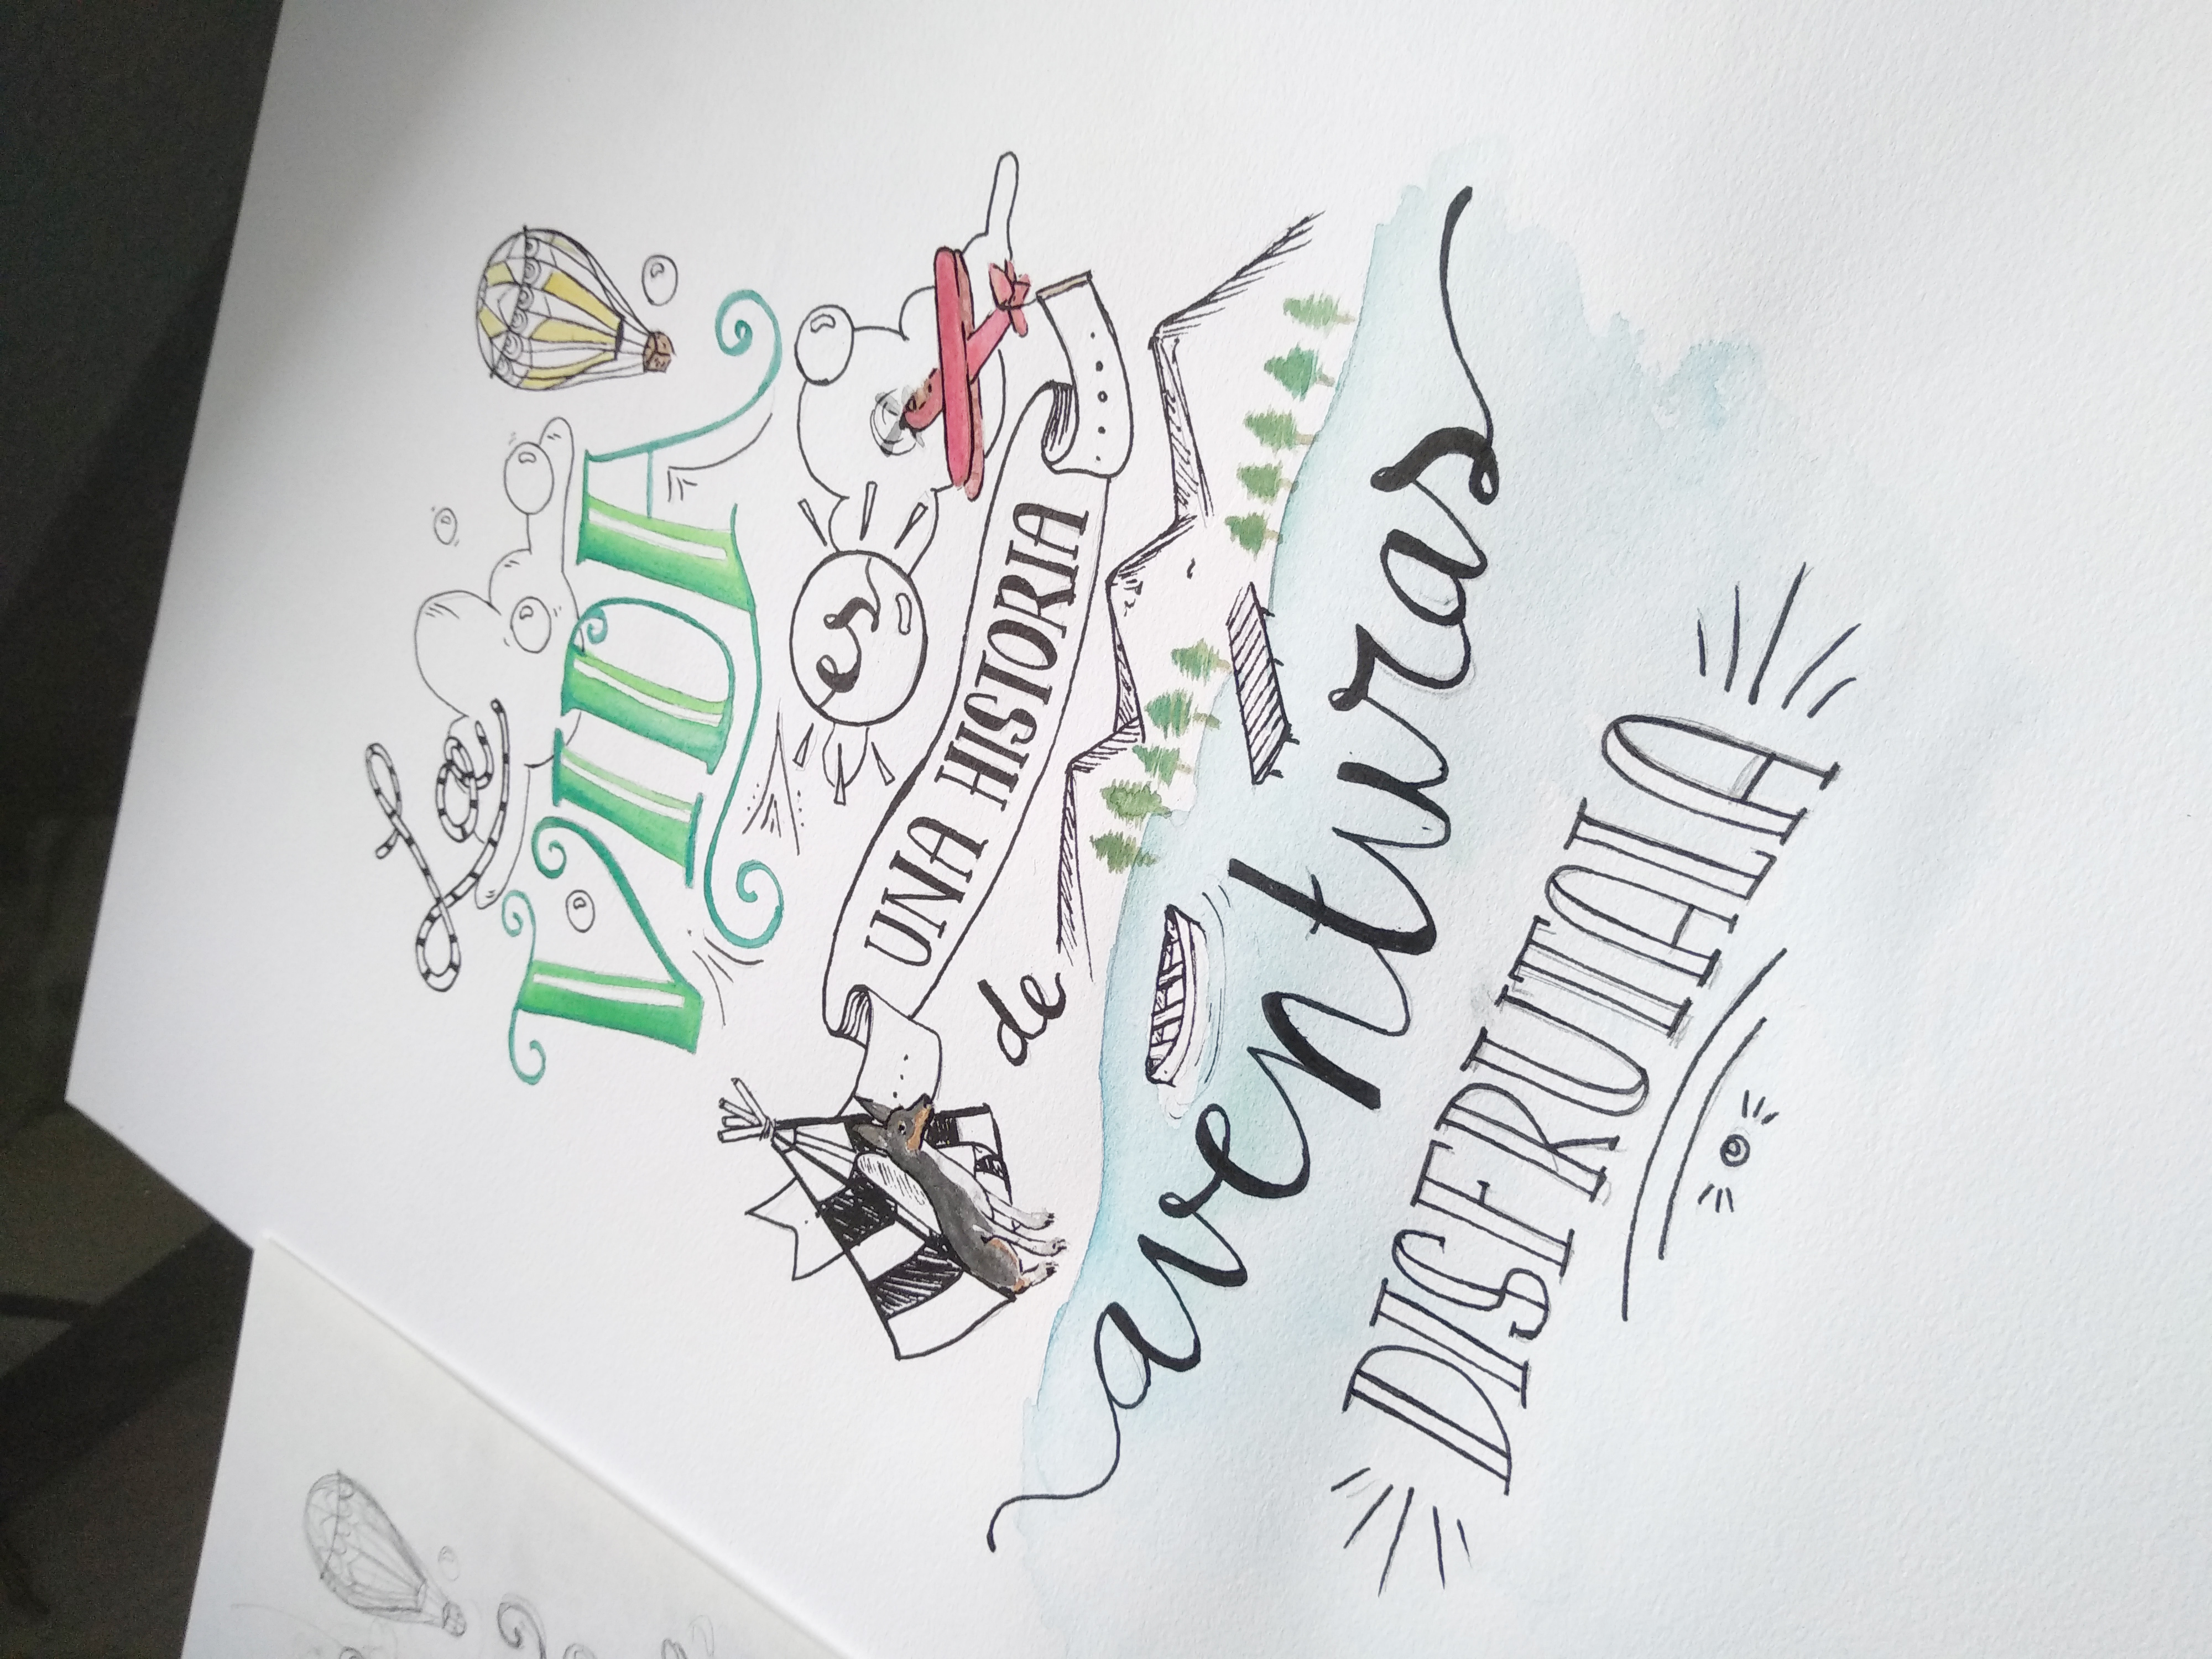 La
VIDA
es
UNA HISTORIA
de
aventuras
DISFRUTALA